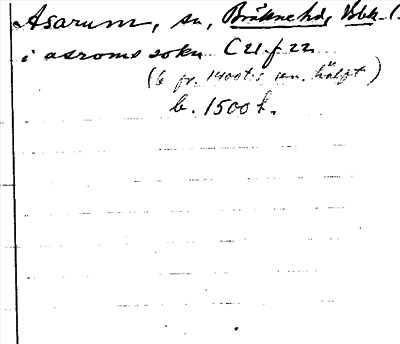 Asarum, sn, Bräkne hd, Blek. l.
i asroms sokn C 21 f 22
(b fr. 1400t:s sen. hälft)
b. 1500 t.